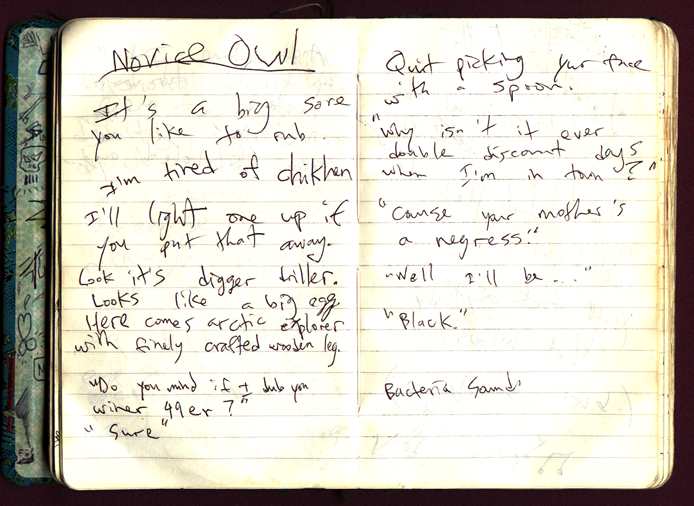 Novice Owl
It's a big sore
you like to rub.
I'm tired of chikhen
I'll light one up if
you put that away.
Look it's digger tiller.
Looks like a big egg.
Here comes arctic explorer
with finely crafted wooden leg.
"Do you mind if I dub you
winer 49er?"
"Sure"
Quit picking your face
with a spoon.
"Why isn't it ever
double discount days
when I'm in town?"
"Cause your mother's
a negress."
"Well I'll be..."
"Black."
Bacteria